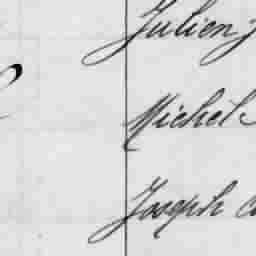 Julien
Michel
Joseph